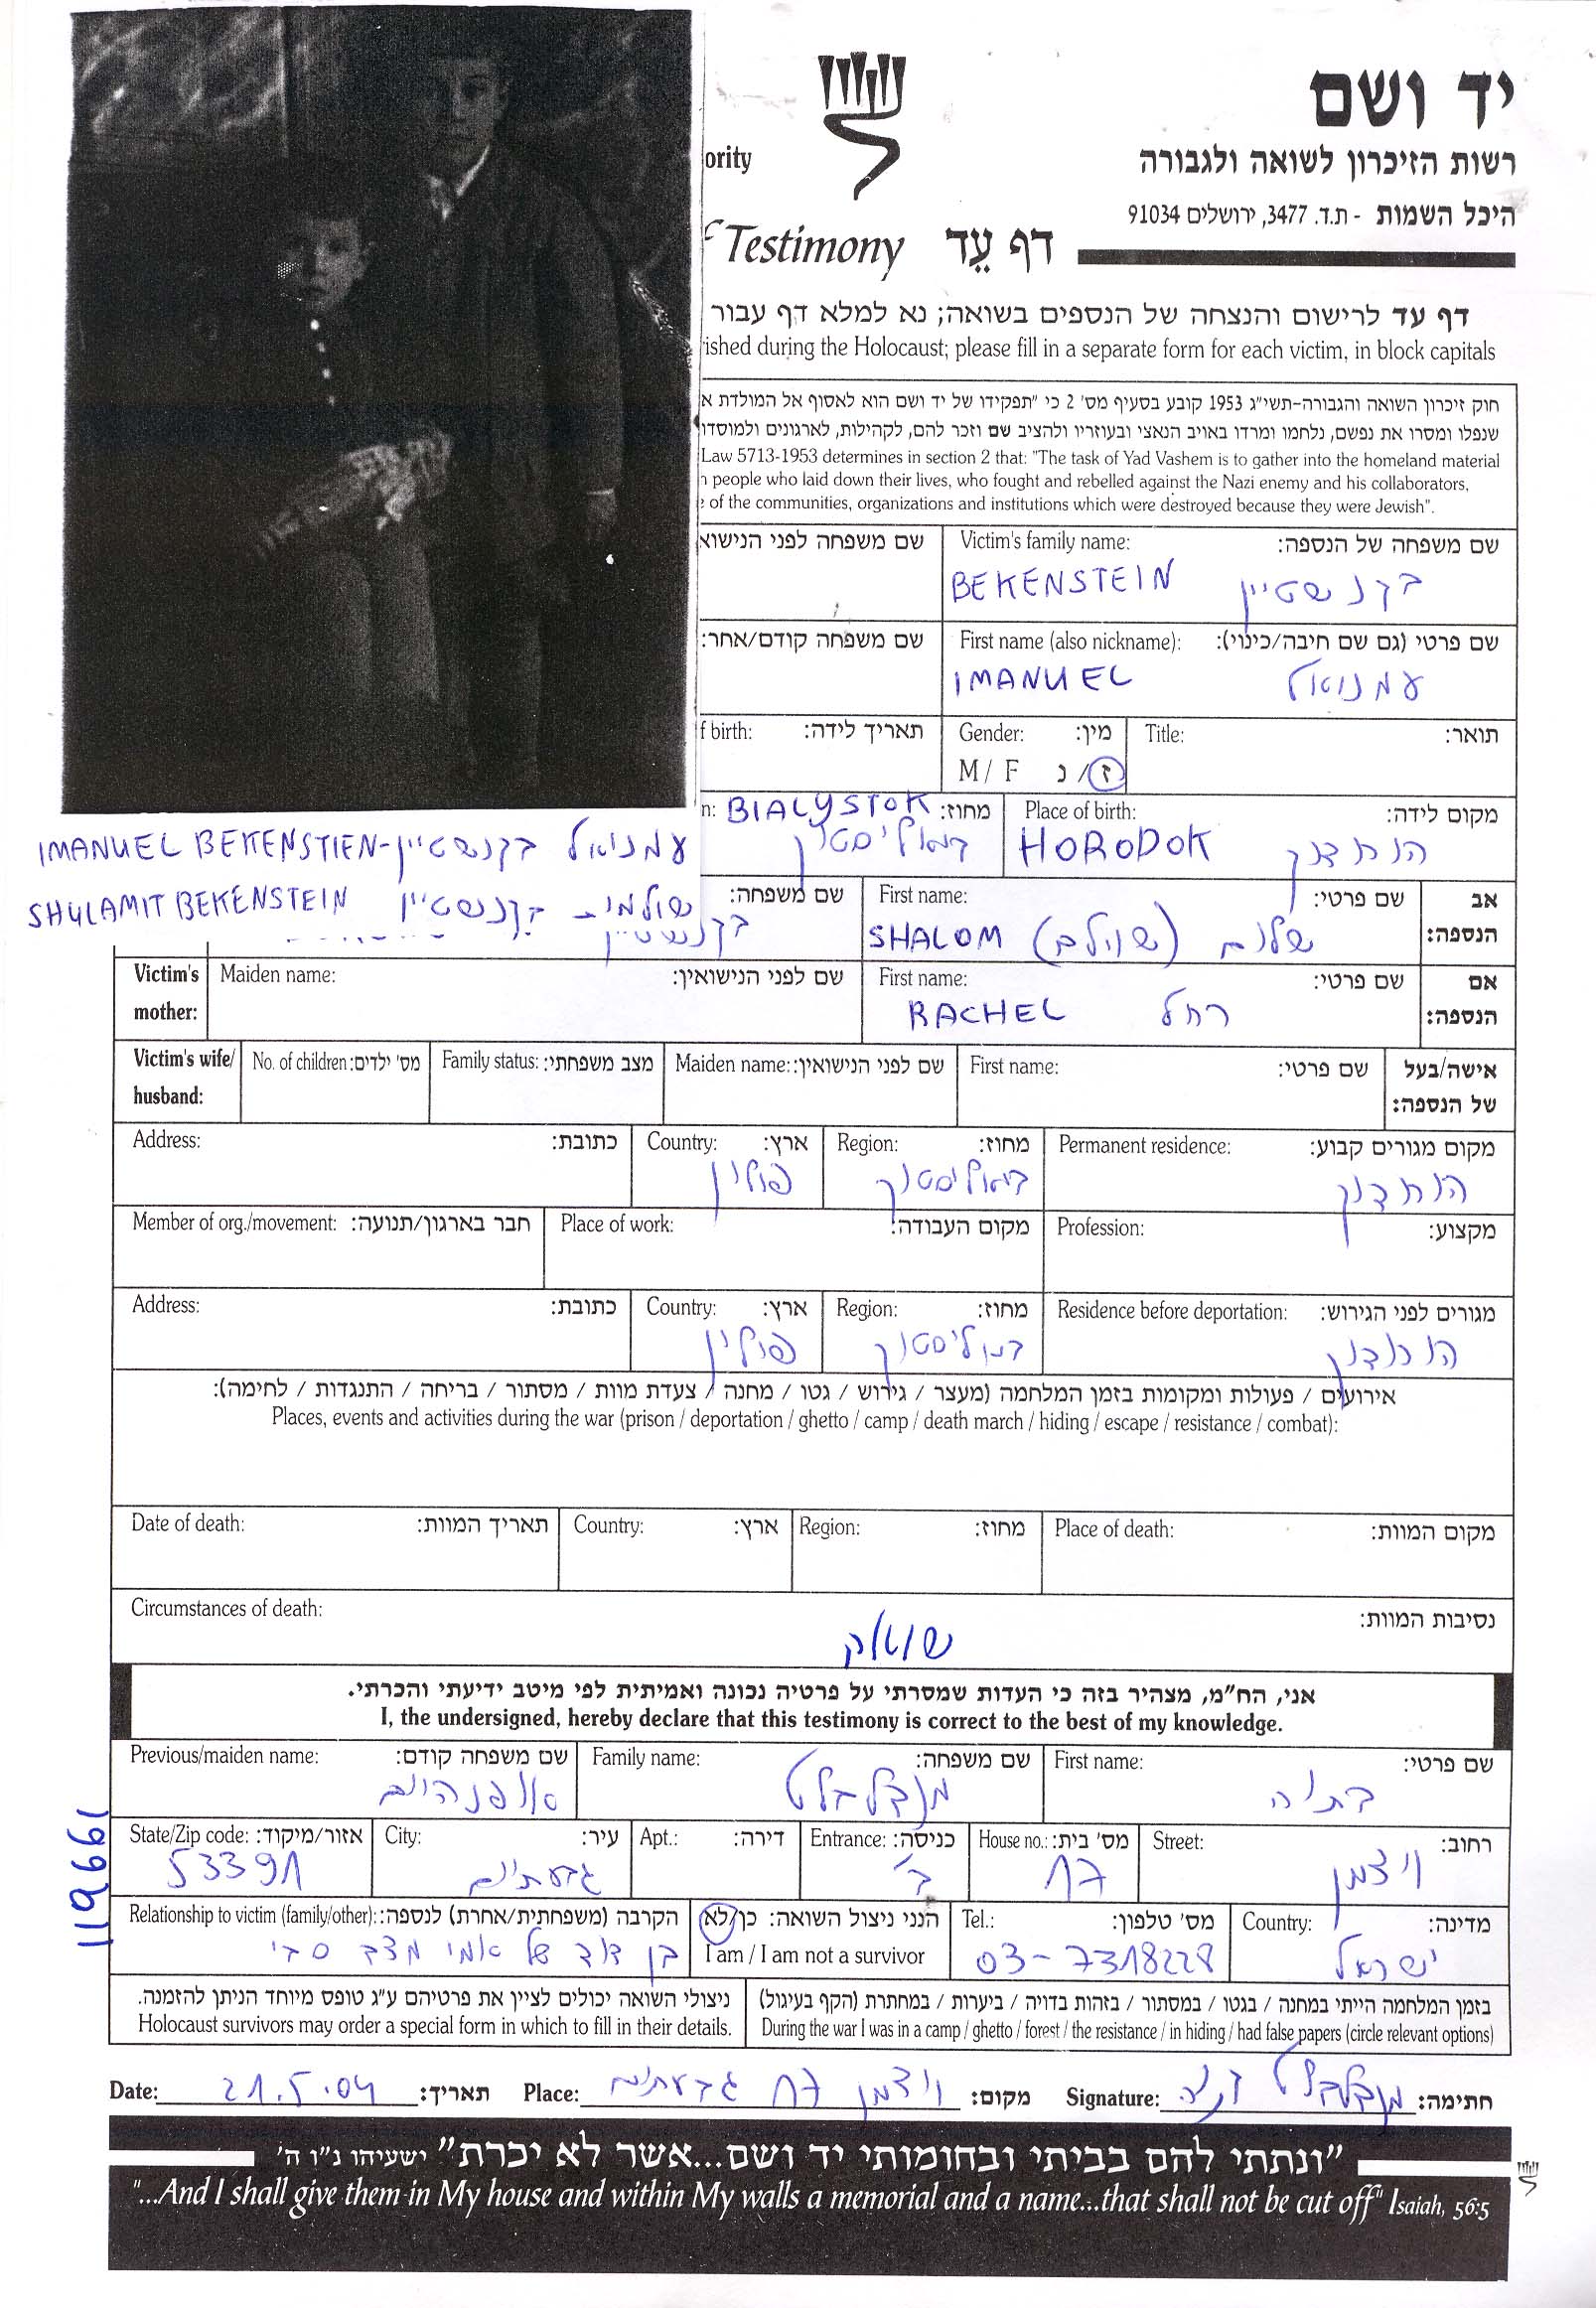 יד ושם
ority
רשות הזיכרון לשואה ולגבורה
היכל השמות - ת.ד. 3477, ירושלים 91034
Testimony דף עֵד
דף עד לרישום והנצחה של הנספים בשואה; נא למלא דף עבור
ished during the Holocaust; please fill in a separate form for each victim, in block capitals
חוק זיכרון השואה והגבורה-תשי"ג 1953 קובע בסעיף מס' 2 כי "תפקידו של יד ושם הוא לאסוף אל המולדת א
שנפלו ומסרו את נפשם, נלחמו ומרדו באויב הנאצי ובעוזריו ולהציב שם וזכר להם, לקהילות, לארגונים ולמוסדו
Law 5713-1953 determines in section 2 that: "The task of Yad Vashem is to gather into the homeland material
n people who laid down their lives, who fought and rebelled against the Nazi enemy and his collaborators,
of the communities, organizations and institutions which were destroyed because they were Jewish".
שם משפחה לפני הנישוא Victim's family name: שם משפחה של הנספה:
BEKENSTEIN בקנשטיין
שם משפחה קודם/אחר: First name (also nickname): שם פרטי (גם שם חיבה/כינוי):
IMANUEL עמנואל
f birth: תאריך לידה: Gender: מין: Title: תואר:
M / F ז/נ
n: BIALYSTOK מחוז: Place of birth: מקום לידה:
ביאליסטוק HORODOK הורודוק
IMANUEL BEKENSTIEN- עמנואל בקנשטיין
SHULAMIT BEKENSTEIN שולמית בקנשטיין
שם משפחה: First name: שם פרטי: אב הנספה:
בקנשטיין SHALOM (שוילם) שלום
Victim's mother: Maiden name: שם לפני הנישואין: First name: שם פרטי: אם הנספה:
RACHEL רחל
Victim's wife/ husband: No. of children: מס' ילדים: Family status: מצב משפחתי: Maiden name: שם לפני הנישואין: First name: שם פרטי: אישה/בעל של הנספה:
Address: כתובת: Country: ארץ: Region: מחוז: Permanent residence: מקום מגורים קבוע:
פולין ביאליסטוק הורודוק
Member of org./movement: חבר בארגון/תנועה: Place of work: מקום העבודה: Profession: מקצוע:
Address: כתובת: Country: ארץ: Region: מחוז: Residence before deportation: מגורים לפני הגירוש:
פולין ביאליסטוק הורודוק
אירועים / פעולות ומקומות בזמן המלחמה (מעצר / גירוש / גטו / מחנה / צעדת מוות / מסתור / בריחה / התנגדות / לחימה):
Places, events and activities during the war (prison / deportation / ghetto / camp / death march / hiding / escape / resistance / combat):
Date of death: תאריך המוות: Country: ארץ: Region: מחוז: Place of death: מקום המוות:
Circumstances of death: נסיבות המוות:
שואה
אני, הח"מ, מצהיר בזה כי העדות שמסרתי על פרטיה נכונה ואמיתית לפי מיטב ידיעתי והכרתי.
I, the undersigned, hereby declare that this testimony is correct to the best of my knowledge.
Previous/maiden name: שם משפחה קודם: Family name: שם משפחה: First name: שם פרטי:
אופנהיים מנדלבלט בתיה
State/Zip code: אזור/מיקוד: City: עיר: Apt.: דירה: Entrance: כניסה: House no.: מס' בית: Street: רחוב:
53391 גבעתיים ב' 17 ויצמן
119661
Relationship to victim (family/other): הקרבה (משפחתית/אחרת) לנספה: הנני ניצול השואה: כן/לא Tel.: מס' טלפון: Country: מדינה:
בן דוד של אמי מצד סבי I am / I am not a survivor 03-7318228 ישראל
ניצולי השואה יכולים לציין את פרטיהם ע"ג טופס מיוחד הניתן להזמנה. בזמן המלחמה הייתי במחנה / בגטו / במסתור / בזהות בדויה / ביערות / במחתרת (הקף בעיגול)
Holocaust survivors may order a special form in which to fill in their details. During the war I was in a camp / ghetto / forest / the resistance / in hiding / had false papers (circle relevant options)
Date: 21.5.04 תאריך: Place: ויצמן 17 גבעתיים מקום: Signature: מנדלבלט בתיה חתימה:
"ונתתי להם בביתי ובחומותי יד ושם...אשר לא יכרת" ישעיהו נ"ו ה'
"...And I shall give them in My house and within My walls a memorial and a name...that shall not be cut off" Isaiah, 56:5